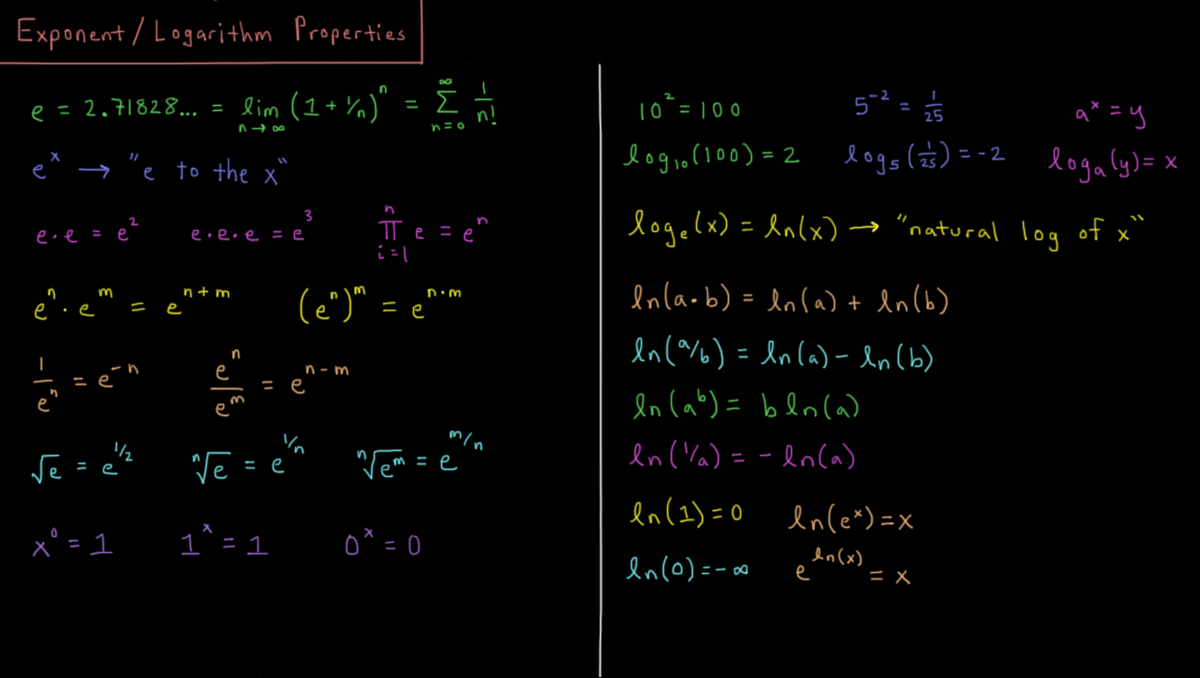 Exponent/Logarithm Properties
e = 2.71828... = lim_{n→∞} (1 + 1/n)^n = ∑_{n=0}^{∞} 1/n!
e^x → "e to the x"
e·e = e^2   e·e·e = e^3   ∏_{i=1}^{n} e = e^n
e^n · e^m = e^{n+m}   (e^n)^m = e^{n·m}
1/e^n = e^{-n}   e^n/e^m = e^{n-m}
√e = e^{1/2}   ⁿ√e = e^{1/n}   ⁿ√(e^m) = e^{m/n}
x^0 = 1   1^x = 1   0^x = 0
10^2 = 100   5^{-2} = 1/25   a^x = y
log_{10}(100) = 2   log_5(1/25) = -2   log_a(y) = x
log_e(x) = ln(x) → "natural log of x"
ln(a·b) = ln(a) + ln(b)
ln(a/b) = ln(a) - ln(b)
ln(a^b) = b ln(a)
ln(1/a) = - ln(a)
ln(1) = 0   ln(e^x) = x
ln(0) = -∞   e^{ln(x)} = x